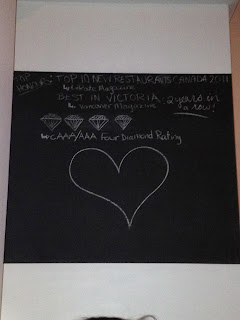 TOP HONOURS
TOP 10 NEW RESTAURANTS CANADA 2011
↳ EnRoute Magazine
BEST IN VICTORIA - 2 years in a row!
↳ Vancouver Magazine
↳ CAAA/AAA Four Diamond Rating